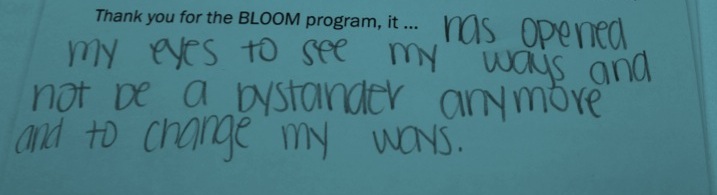 Thank you for the BLOOM program, it ... has opened
my eyes to see my ways and
not be a bystander anymore
and to change my ways.